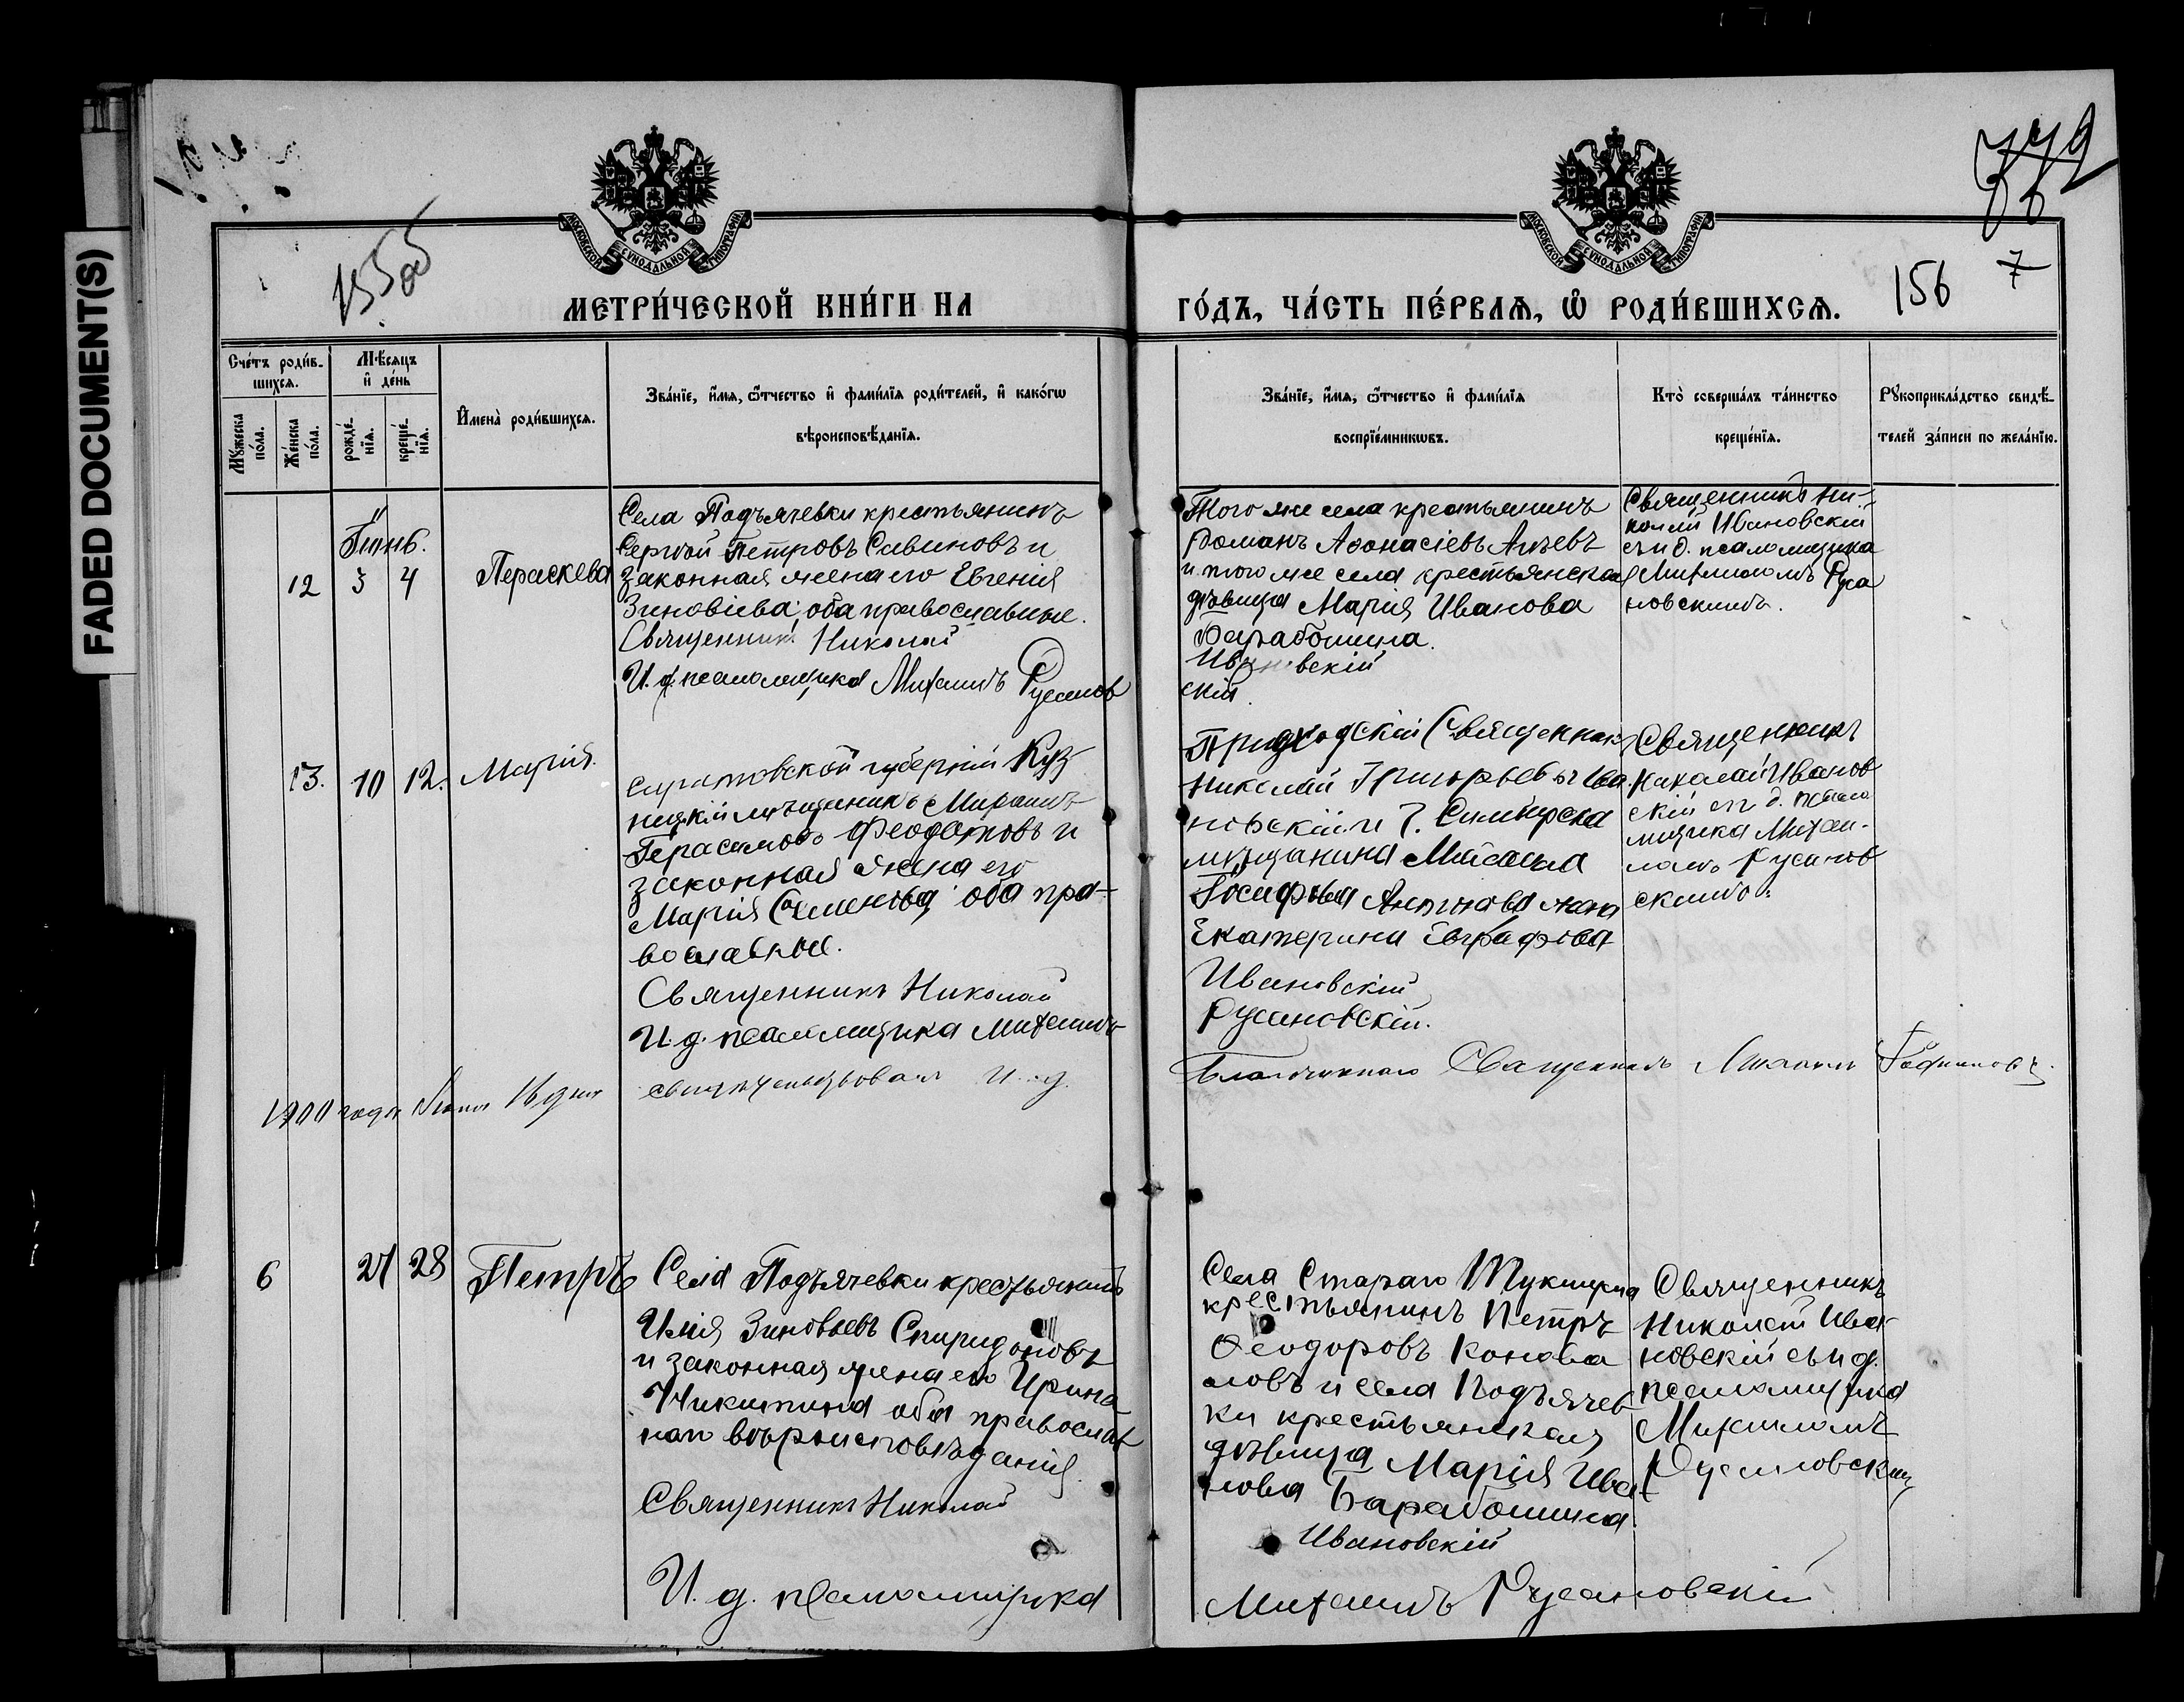 FADED DOCUMENT(S)
155об
156
7
МЕТРИ́ЧЕСКОЙ КНИ́ГИ НА
ГО́ДЪ, ЧА́СТЬ ПЕ́РВАѦ, Ѽ РОДИ́ВШИХСѦ.
Сче́тъ роди́в-
шихся.
Мѣ́сяцъ
и҆ де́нь
Мꙋ́жеска
по́ла.
Же́нска
по́ла.
рожде́-
нїя.
креще́-
нїя.
И҆мена̀ роди́вшихся.
Зва́нїе, и҆́мя, ѻ҆́тчество и҆ фами́лїя роди́телей, и҆ како́гѡ
вѣроисповѣ́данїя.
Зва́нїе, и҆́мя, ѻ҆́тчество и҆ фами́лїя
воспрїе́мникѡвъ.
Кто̀ соверша́лъ та́инство
креще́нїя.
Рꙋкоприкла́дство свидѣ́-
телей за́писи по жела́нїю.
Іюнь.
12 3 4 Пераскева
Села Подъячевки крестьянинъ
Сергѣй Петровъ Савиновъ и
законная жена его Евгенія
Зиновіева; оба православные.
Священникъ Николай
И. д. псаломщика Михаилъ Русанов
Того же села крестьянинъ
Романъ Аѳонасіевъ
и того же села крестьянская
дѣвица Марія Иванова
Барабошина.
Ивановскій
скій.
Священникъ Ни-
колай Ивановскій
съ и д. псаломщика
Михаиломъ Руса
новскимъ.
13. 10 12. Марія.
Саратовской губерніи Куз
нецкій мѣщанинъ Михаилъ
Герасимовъ Феодотовъ и
законная жена его
Марія Семенова; оба пра-
вославные.
Священникъ Николай
И. д. псаломщика Михаилъ
Приходскій Священник
Николай Григорьевъ Ива
новскій и г. Симбирска
мѣщанина Михаила
Іосифова Антинова жена
Екатерина Евграфова
Ивановскій
Русановскій.
Священникъ
Николай Иванов
скій съ и д. псало
мщика Михаи-
ломъ Русанов
скимъ.
1900 года Іюня 16 дня свидѣтельствовалъ И. д. Благочиннаго Священникъ
6 27 28 Петръ
Села Подъячевки крестьянинъ
Илія Зиновьевъ Спиридоновъ
и законная жена его Ирина
Никитина оба православ
наго вѣроисповѣданія.
Священникъ Николай
И. д. псаломщика
Села Стараго Тукшума
крестьянинъ Петръ
Ѳеодоровъ Конова
ловъ и села Подъячев
ки крестьянская
дѣвица Марія Ива
нова Барабошина.
Ивановскій
Михаилъ Русановскій
Священникъ
Николай Ива-
новскій съ и д.
псаломщика
Михаиломъ
Русановским